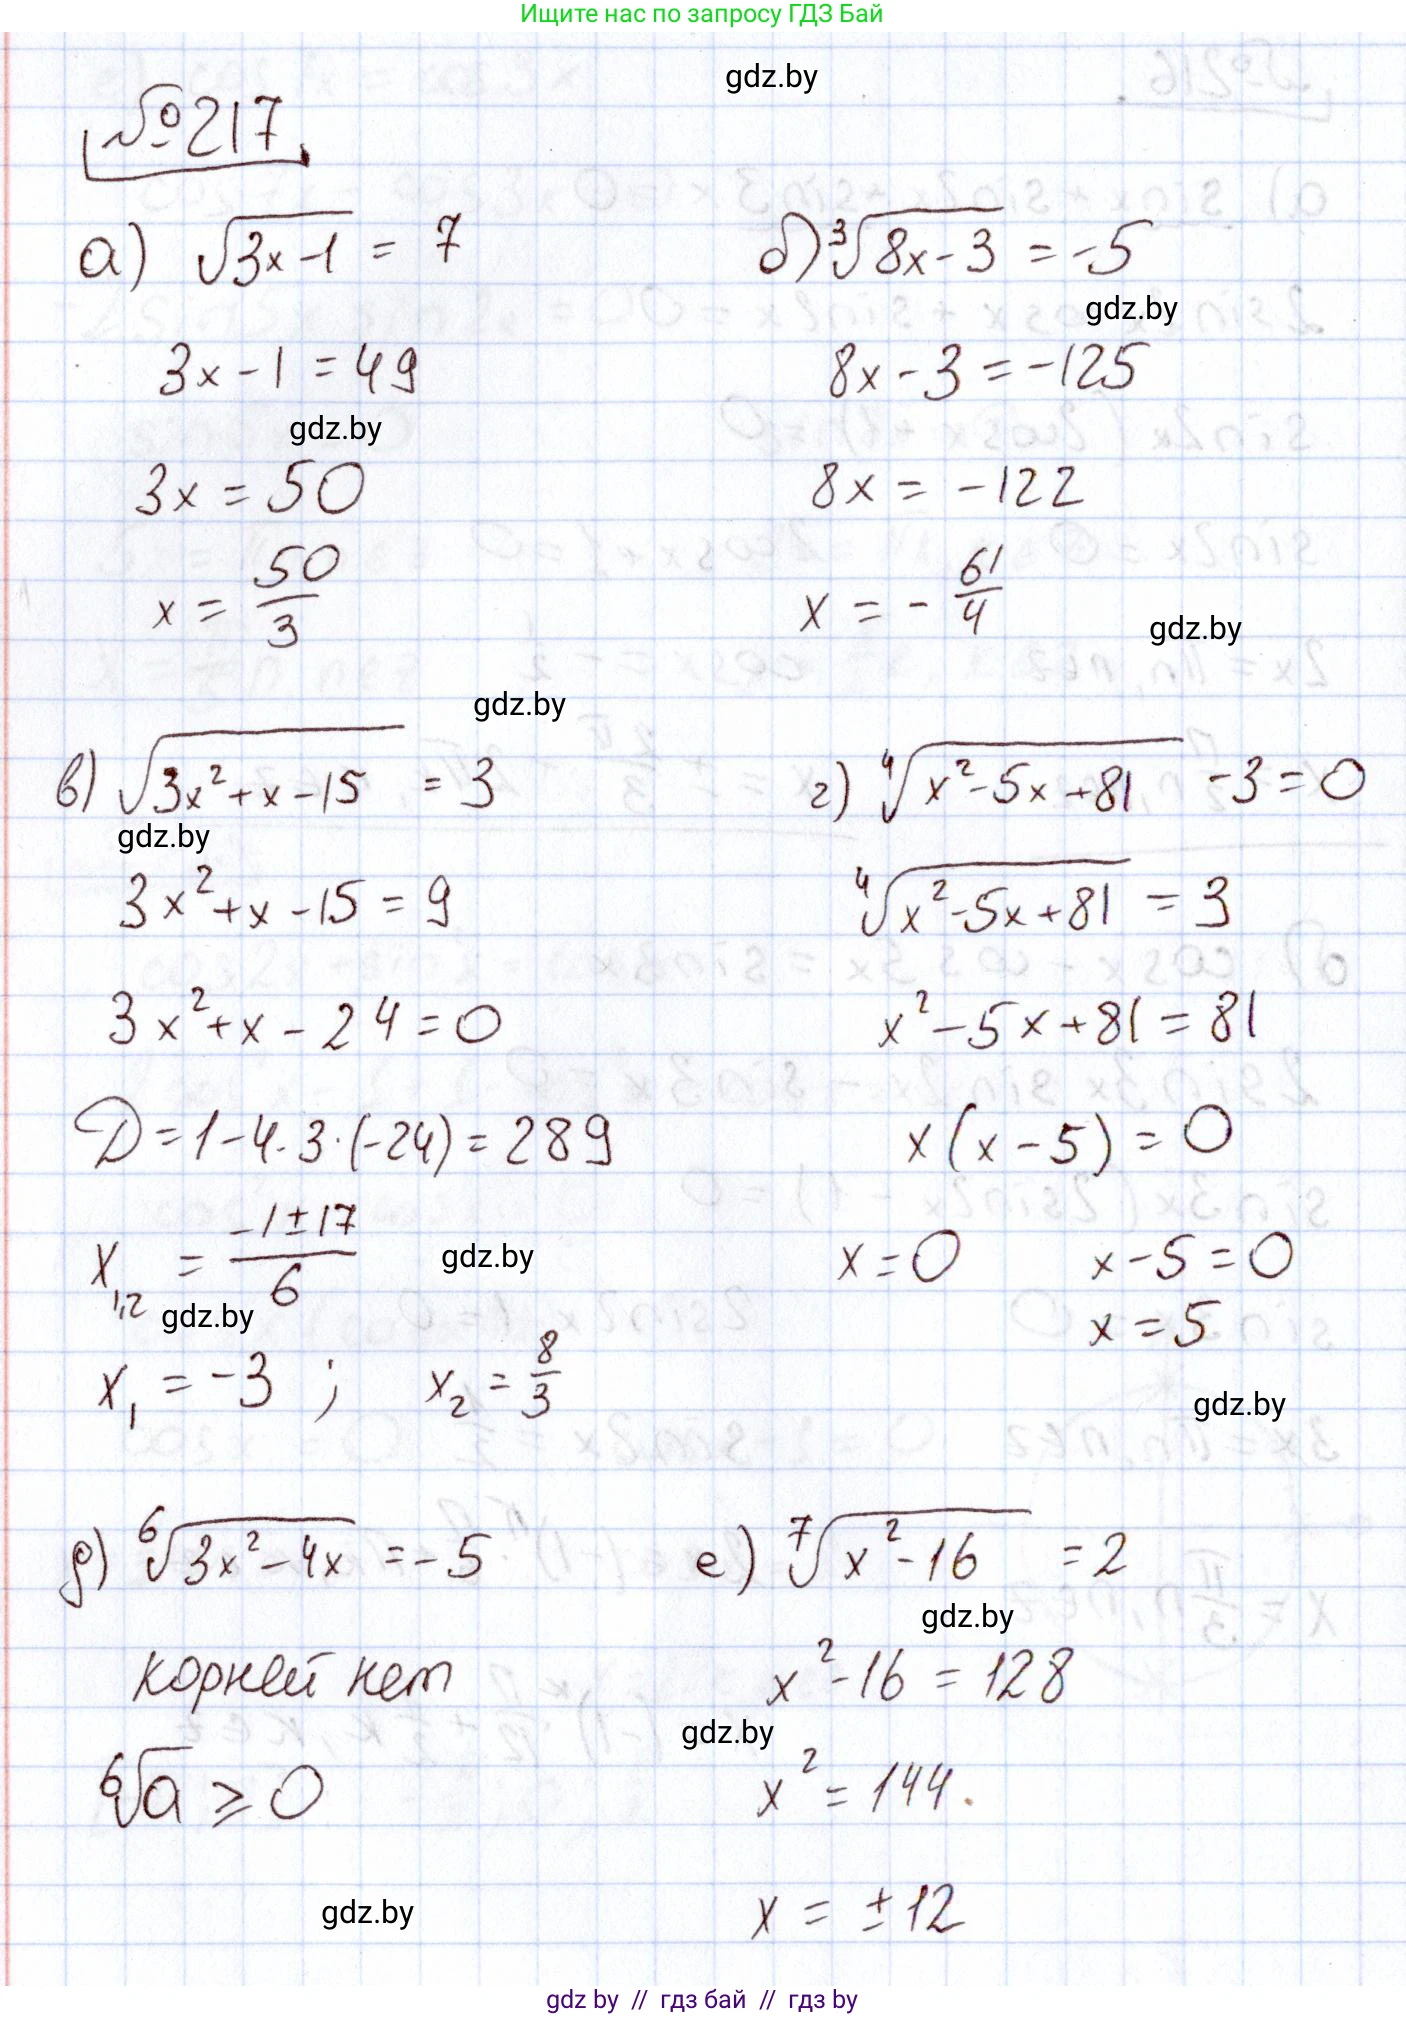 Ищите нас по запросу ГДЗ Бай
gdz.by
№217
а) √(3x-1) = 7
3x-1 = 49
gdz.by
3x = 50
x = 50/3
б) ∛(8x-3) = -5
gdz.by
8x-3 = -125
8x = -122
x = -61/4
gdz.by
gdz.by
в) √(3x²+x-15) = 3
gdz.by
3x²+x-15 = 9
3x²+x-24 = 0
D = 1-4·3·(-24) = 289
x₁,₂ = (-1±17)/6
gdz.by
gdz.by
x₁ = -3 ; x₂ = 8/3
г) ⁴√(x²-5x+81) -3 = 0
⁴√(x²-5x+81) = 3
x²-5x+81 = 81
x(x-5) = 0
x = 0 x-5 = 0
x = 5
gdz.by
д) ⁶√(3x²-4x) = -5
корней нет
⁶√a ⩾ 0
gdz.by
е) ⁷√(x²-16) = 2
gdz.by
x²-16 = 128
gdz.by
x² = 144.
x = ±12
gdz by // гдз бай // гдз by